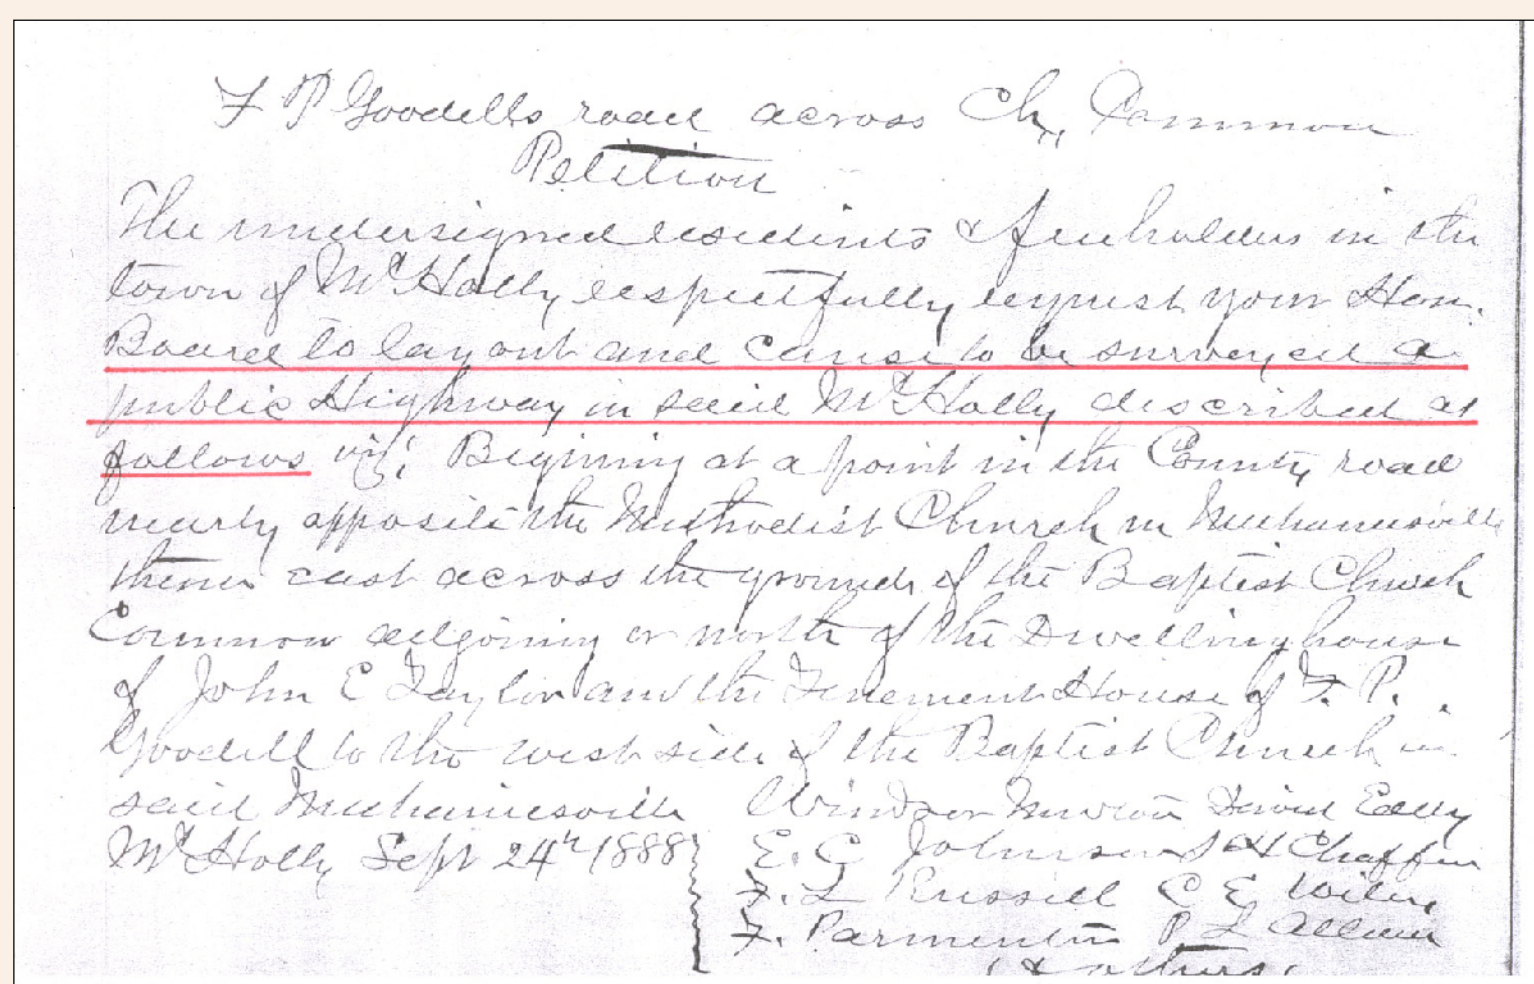 F P Goodells road across Ch, Common
Petition
The undersigned residents & freeholders in the
town of Mt Holly respectfully request your Hon.
Board to lay out and cause to be surveyed a
public Highway in said Mt Holly described as
follows viz; Begining at a point in the County road
nearly opposite the Methodist Church in Mechanicsville
thence east across the grounds of the Baptist Church
Common adjoining or north of the Dwelling house
of John E Taylor and the Tenement House of F. P.
Goodell to the west side of the Baptist Church in
said Mechanicsville Windsor Newton David
Mt Holly Sept 24th 1888 E. C. Johnson S H Chaffin
F. L Russell C E
F. Parmenter P L
& others